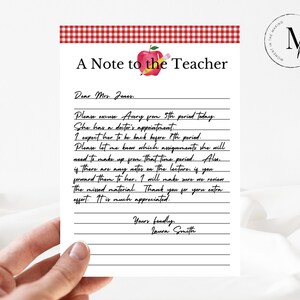 A Note to the Teacher
Dear Mrs. Jones,
Please excuse Avery from 5th period today.
She has a doctor's appointment.
I expect her to be back before 7th period.
Please let me know which assignments she will
need to make up from that time period. Also,
if there are any notes on the lecture, is you
forward them to her, I will make sure we review
the missed material. Thank you for your extra
effort. It is much appreciated.
Yours fondly,
Laura Smith